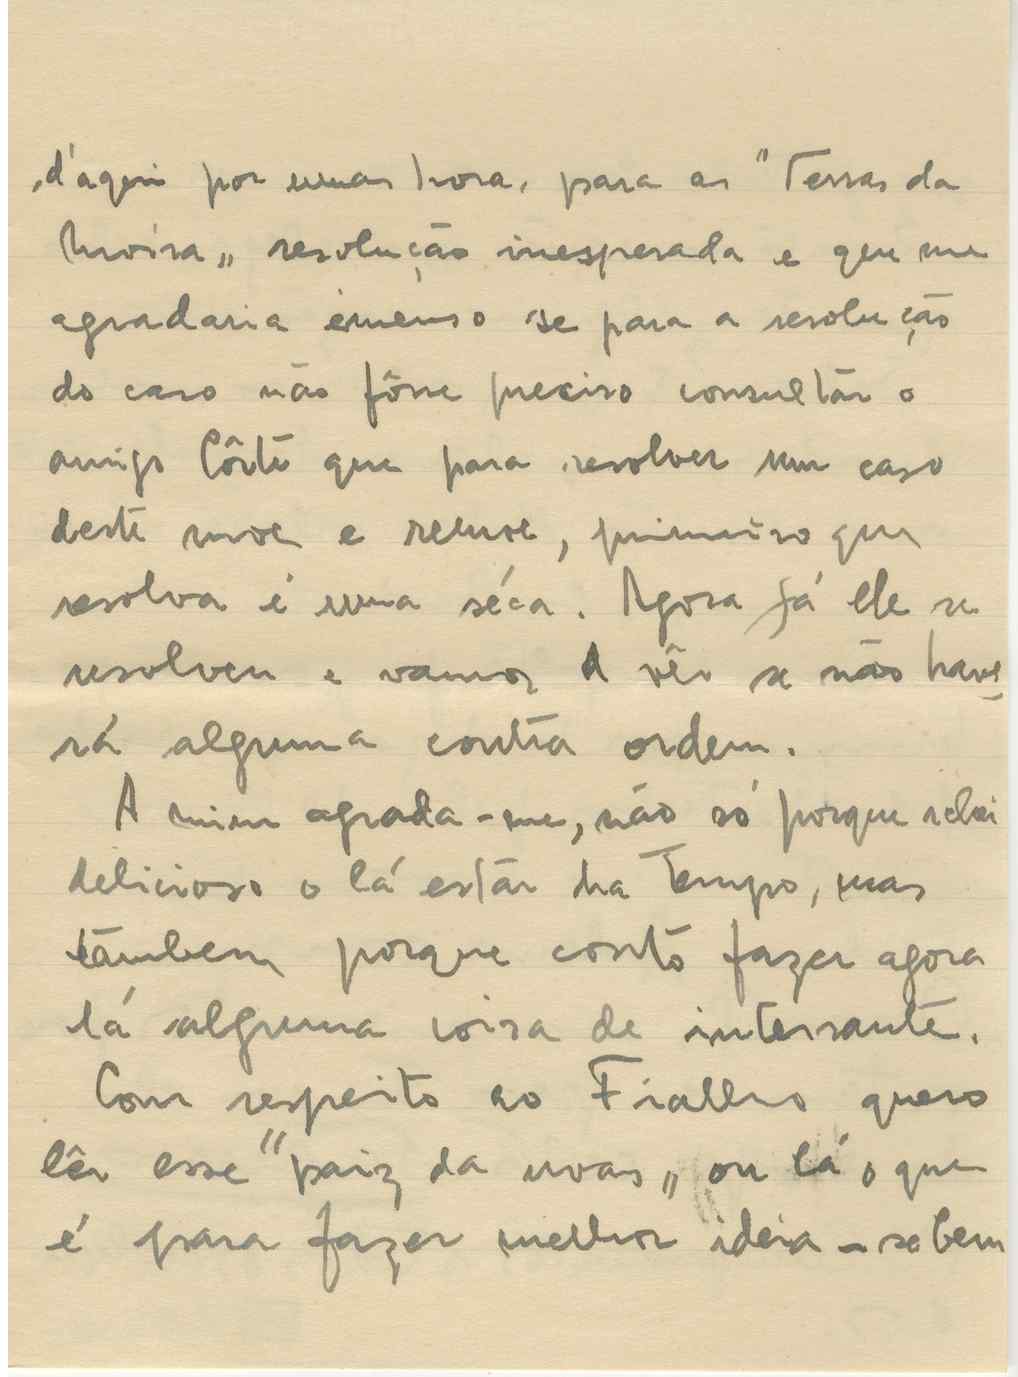 d'aqui por umas hora, para as "Terras da
Moira„ resolução inesperada e que me
agradaria imenso se para a resolução
do caso não fôsse preciso consultár o
amigo Côrte que para resolver um caso
deste moe e remoe, primeiro que
resolva é uma séca. Agora já ele se
resolveu e vamos a vêr se não have
rá alguma contra ordem.
A mim agrada-me, não só porque
delicioso o lá estár ha tempo, mas
támbem porque conto fazer agora
lá alguma coisa de interssante.
Com respeito ao Fialho quero
lêr esse "paiz da uvas„ ou lá o que
é para fazer melhor ideia - se bem